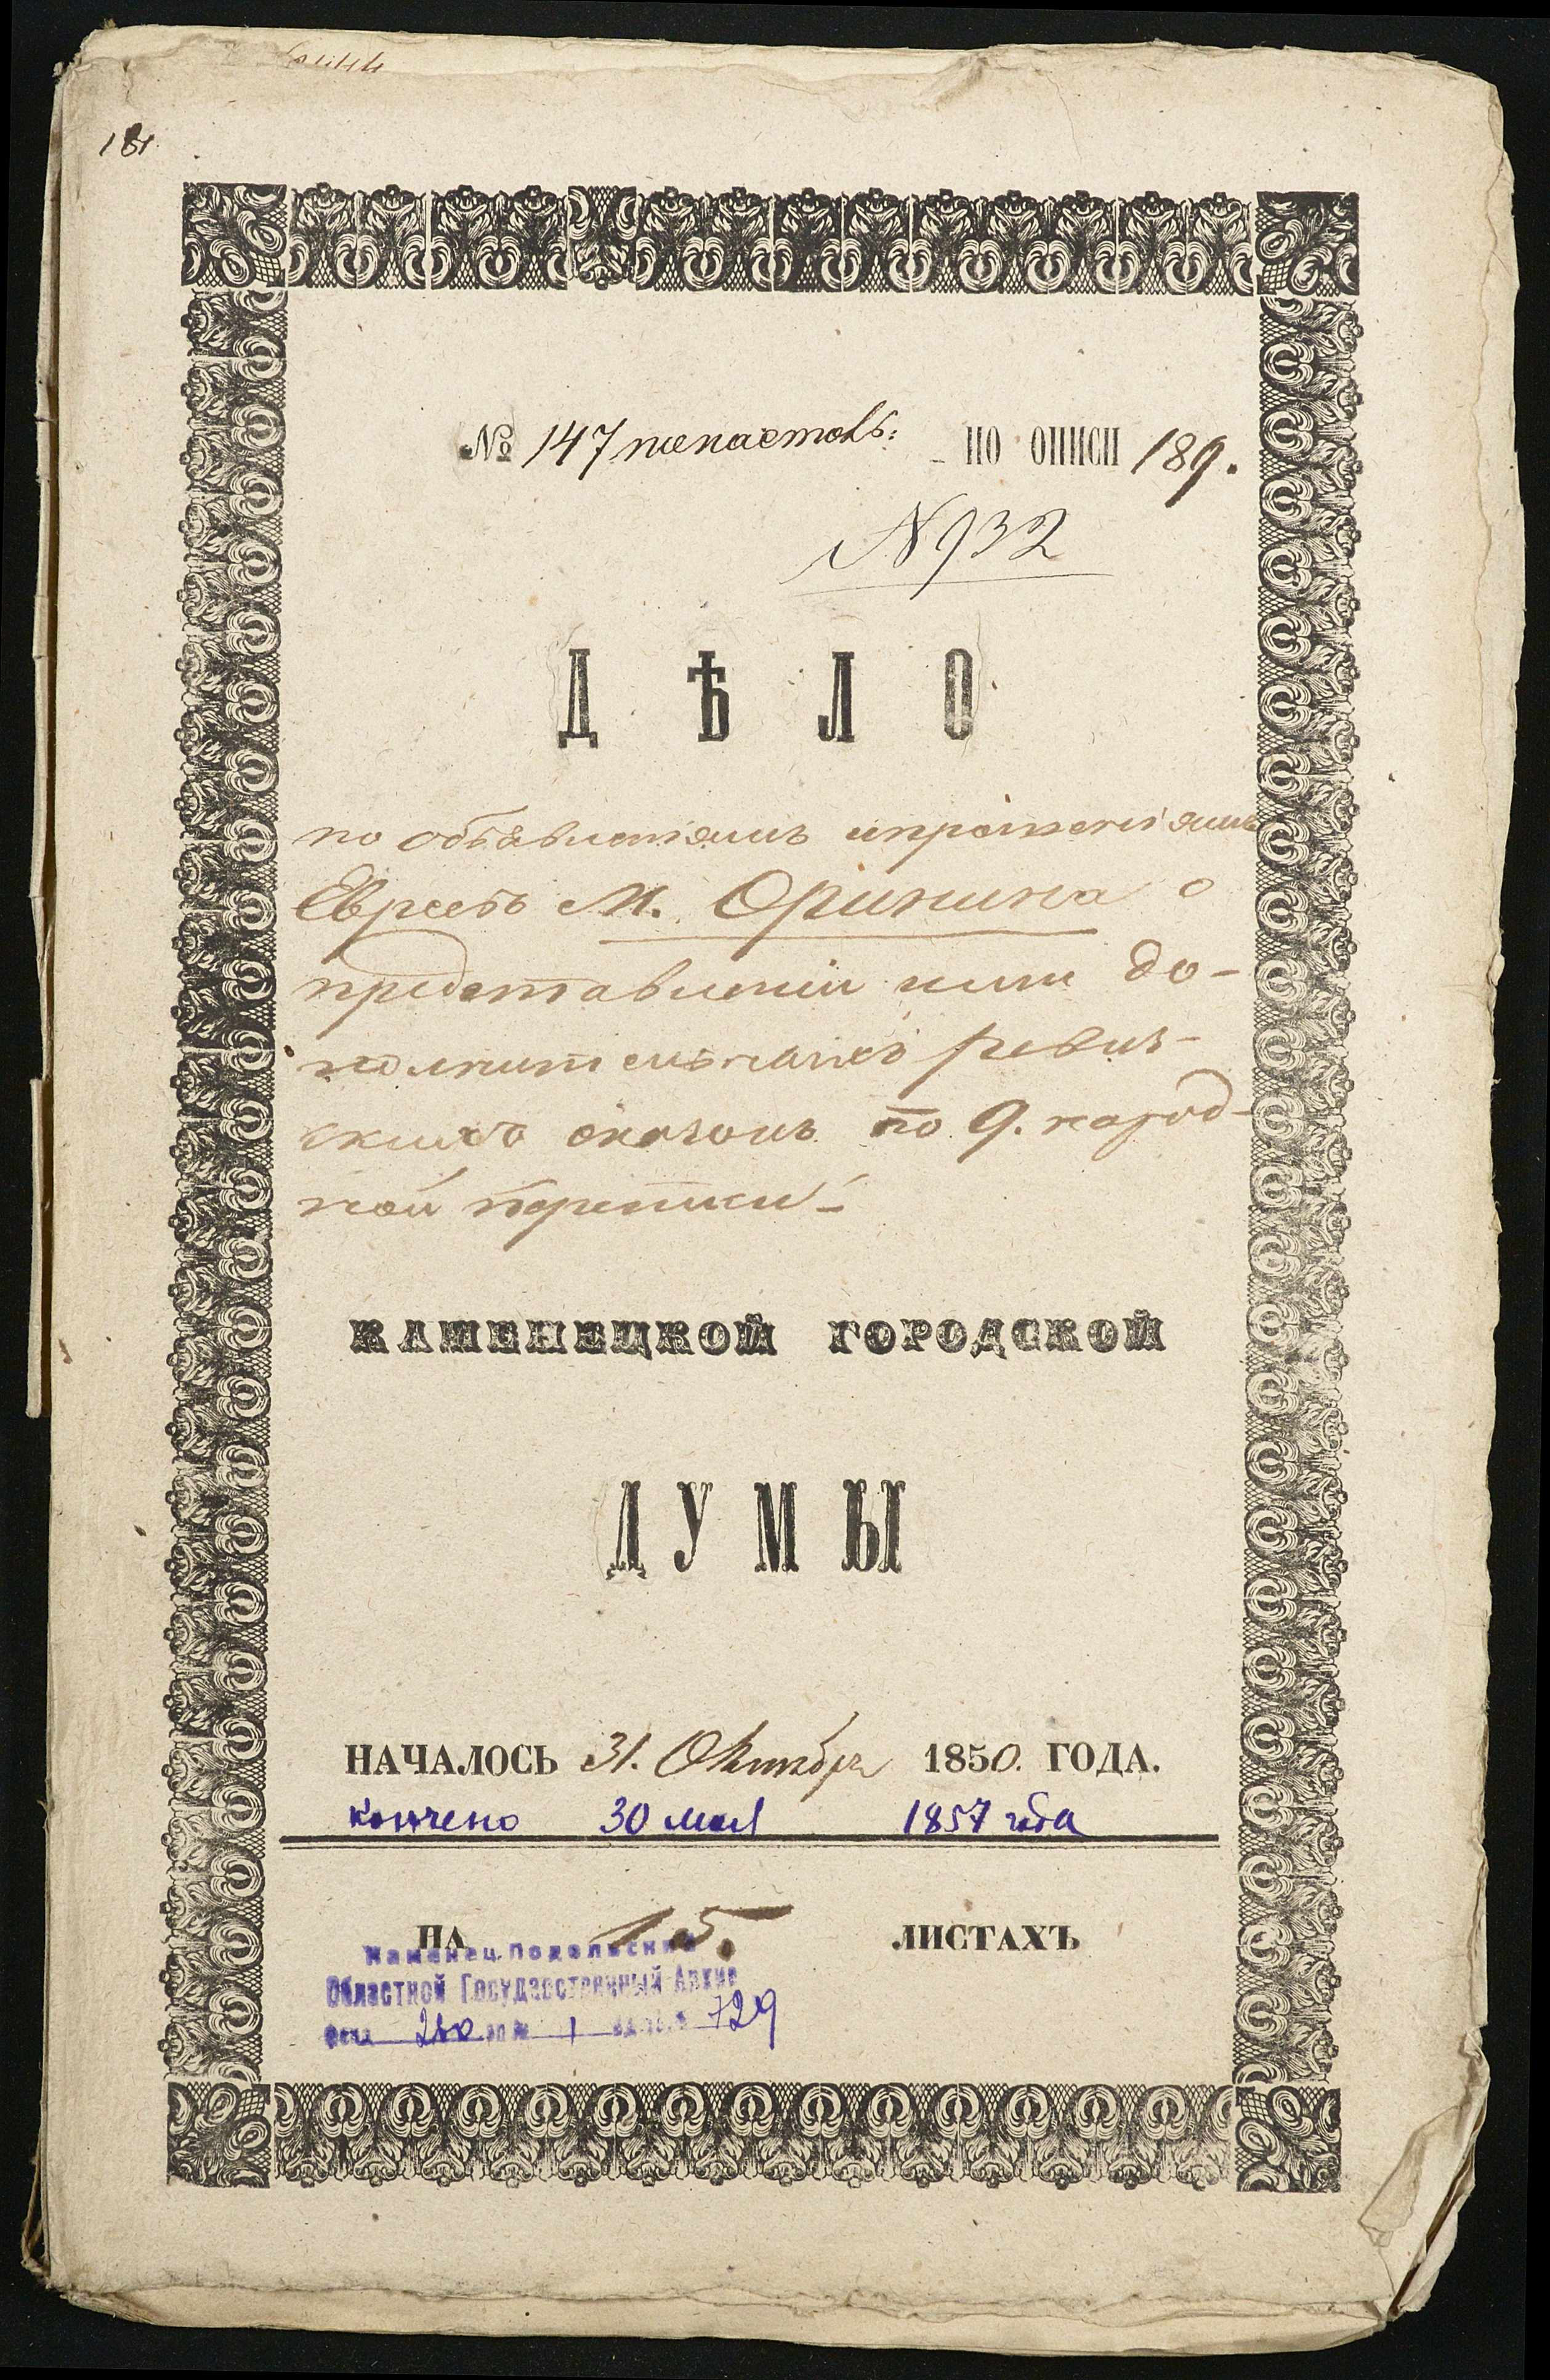 181.
№ 147 по настол: ПО ОПИСИ 189.
N 932
ДѢЛО
по объявленіямъ и прошеніямъ
Евреевъ М. Оринина о
представленіи ими до-
полнительныхъ ревиз-
скихъ сказокъ по 9. народ-
ной переписи
КАМЕНЕЦКОЙ ГОРОДСКОЙ
ДУМЫ
НАЧАЛОСЬ 31. Октября 1850. ГОДА.
кончено 30 мая 1857 года
НА 15. ЛИСТАХЪ
Каменец. Подольский
Областной Государственный Архив
Фонд 280 оп № 1 ед. хр. № 729